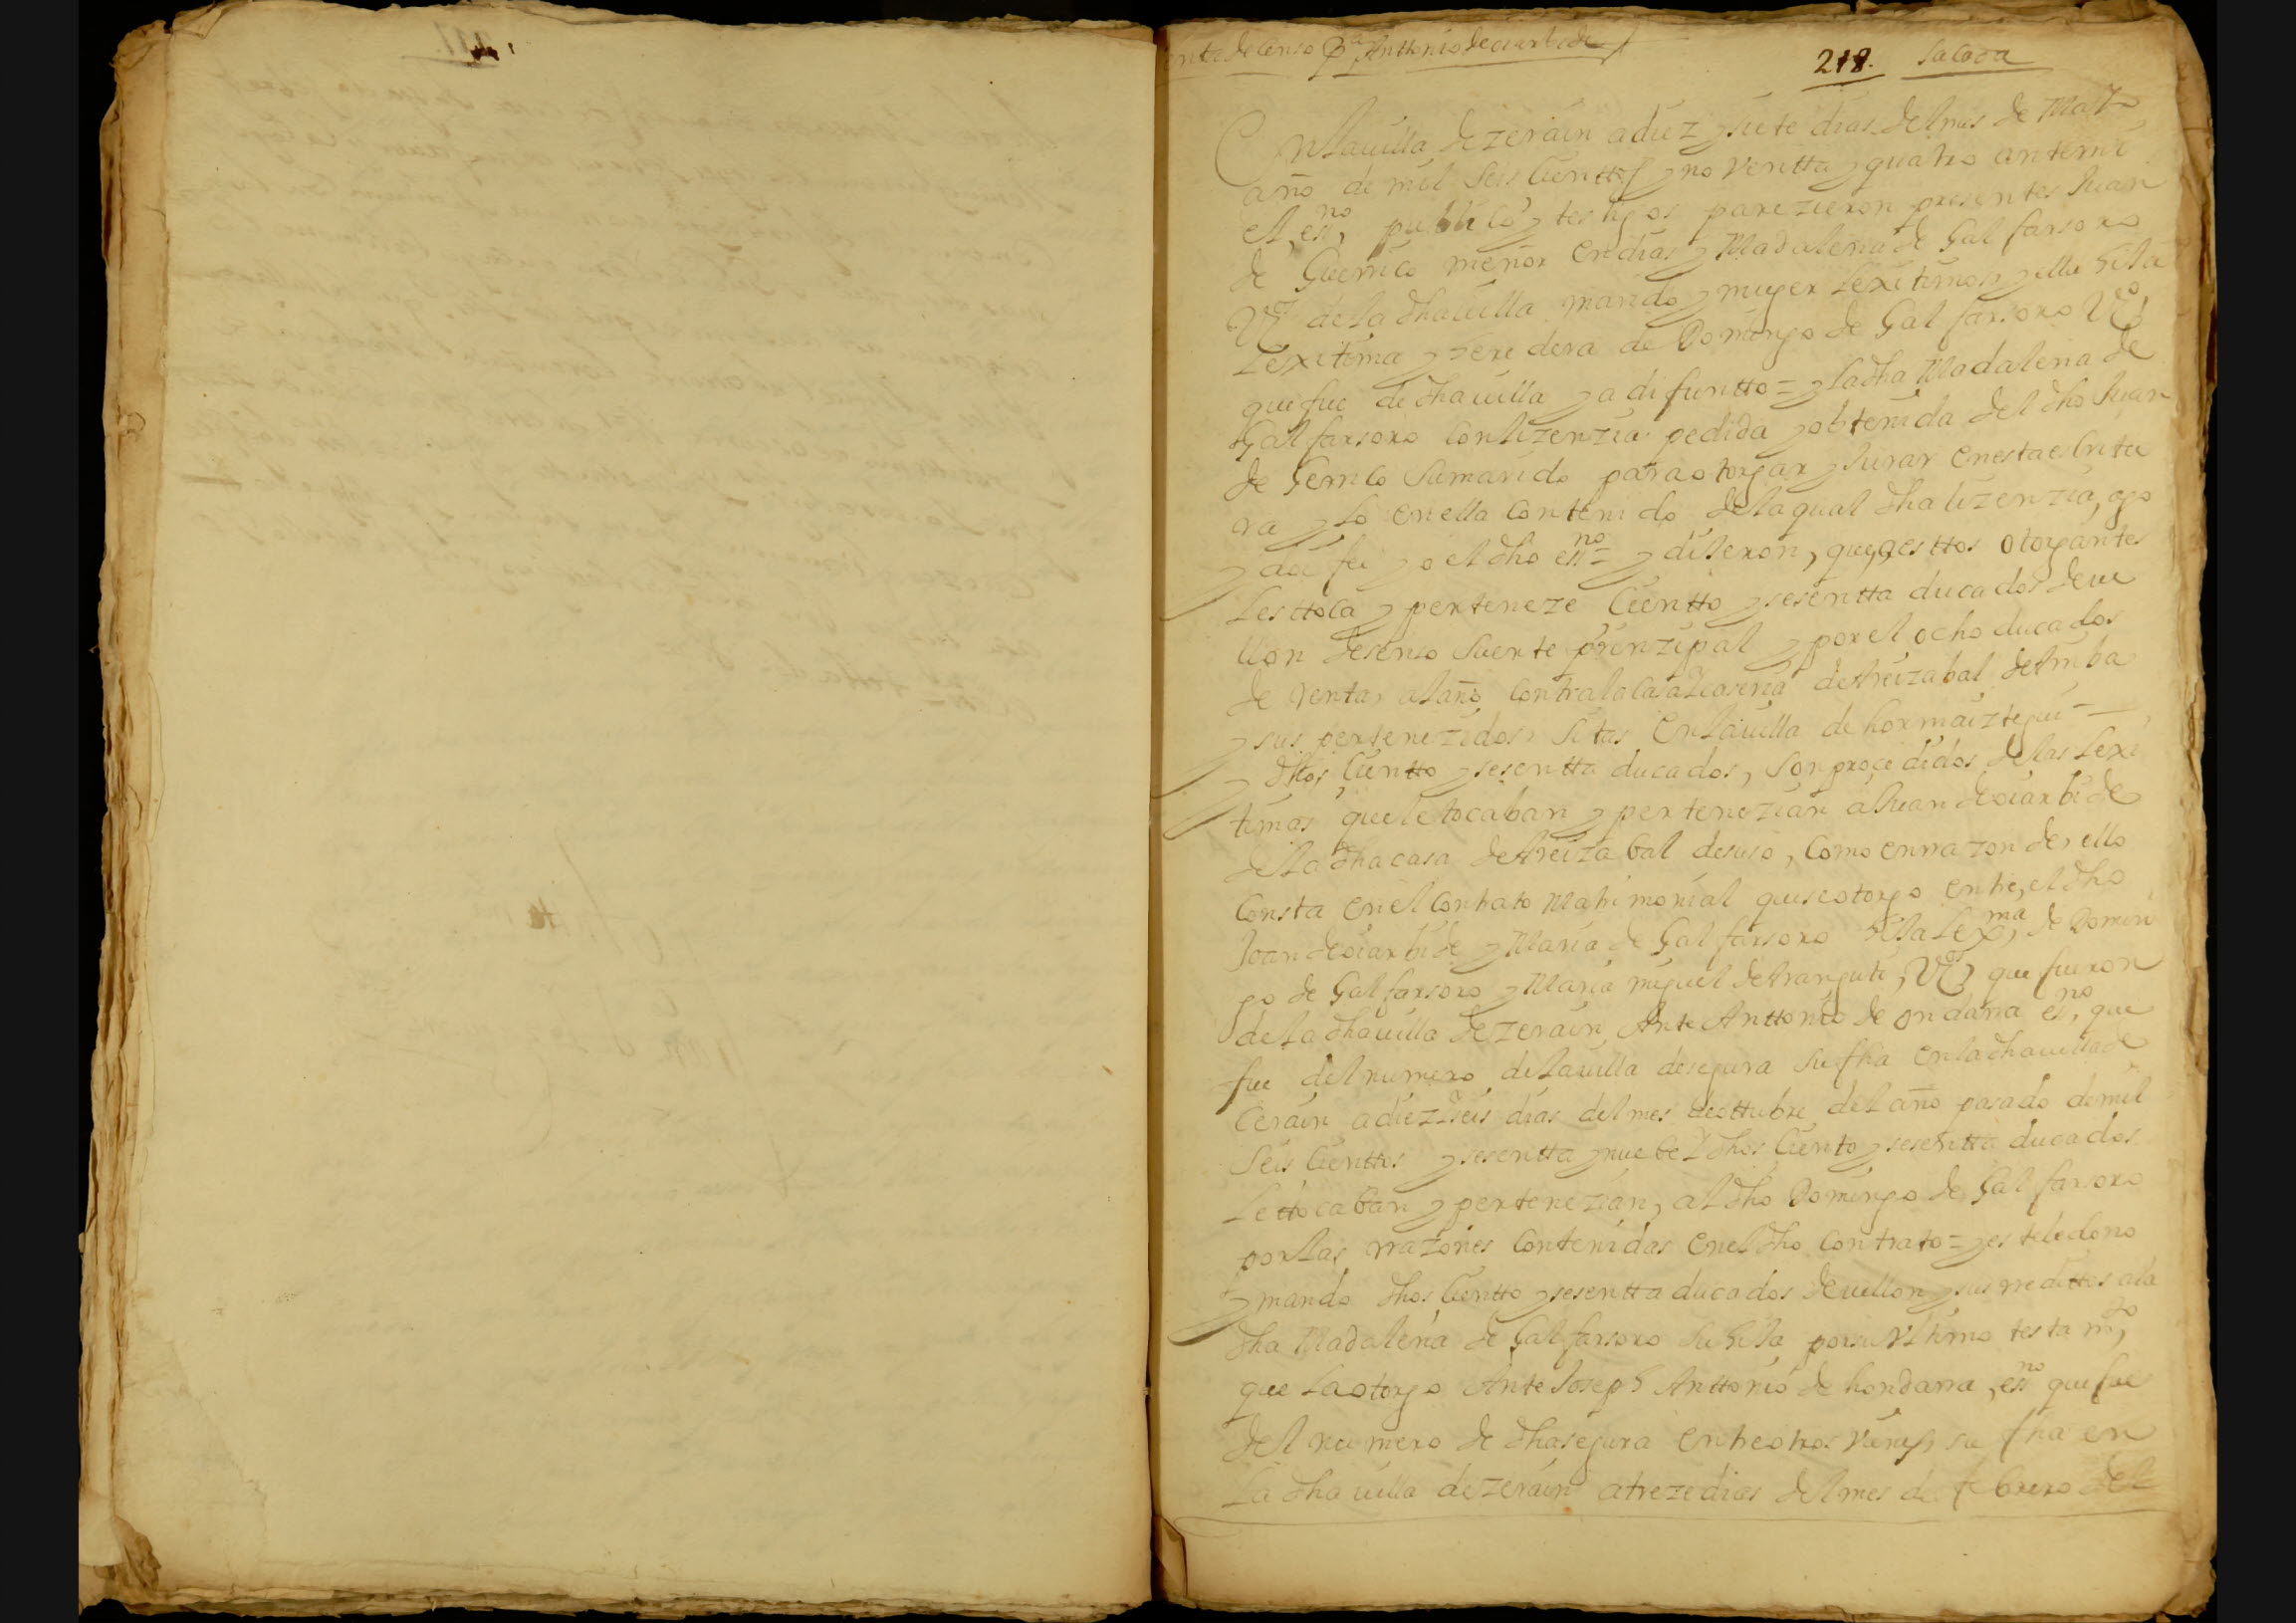 enta de Censo Pa Anttonio de oiarbide
218. Sacada
En la uilla de zerain a diez y siete dias del mes de Mayo
año de mil seis cienttos y noventta y quatro ante mi
el essno publico y testigos parezieron presentes Juan
de Guerrico menor en dias y Madalena de Galfarsoro
Vos de la dha uilla marido y muger lexitimos y ella hija
lexitima y heredera de Domingo de Galfarsoro Vo
que fue de dha uilla ya difuntto = y la dha Madalena de
Galfarsoro con lizenzia pedida y obtenida del dho Juan
de Gerrico su marido para otorgar y jurar en esta escritu
ra y lo en ella contenido de la qual dha lizenzia, yo
y doi fee yo el dho essno = y dijeron, que a esttos otorgantes
les ttoca y perteneze cientto y sesentta ducados de ve
llon de senso suerte prinzipal y por el ocho ducados
de renta al año contra la casa y caseria de Areizabal de Arriba
y sus pertenezidos sitas en la uilla de hormaiztegui =
y dhos cientto y sesentta ducados, son procedidos de las lexi
timas que le tocaban y pertenezian a Juan de oiarbide
de la dha casa de Areizabal de suso, como en rrazon de ello
consta en el contrato Matrimonial que se otorgo entre, el dho
Joan de oiarbide y Maria de Galfarsoro hija lexma, de Domin
go de Galfarsoro y Maria miguel de Aranguti, Vos que fueron
de la dha uilla de zerain, Ante Anttonio de ondarra esno, que
fue del numero de la uilla de segura su fha en la dha uilla de
Cerain a diez y seis dias del mes de ottubre del año pasado de mil
seis cienttos y sesentta y nuebe y dhos ciento y sesentta ducados
le ttocaban y pertenezian, al dho Domingo de Galfarsoro
por las rrazones contenidas en el dho contrato = y este le dono
y mando dhos cientto y sesentta ducados de uellon y sus rredittos a la
dha Madalena de Galfarsoro su hija por su Vltimo testamto,
que la otorgo Ante Joseph Anttonio de hondarra, essno que fue
del numero de dha segura entre otros vienes, su fha en
la dha uilla de zerain a treze dias del mes de febrero del